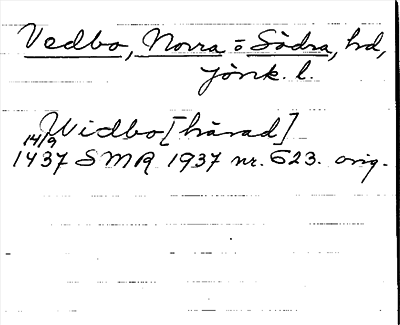 Vedbo, Norra o Södra, hd,
Jönk. l.
Widbo [härad]
14/9
1437 SMR 1937 nr. 623. orig.